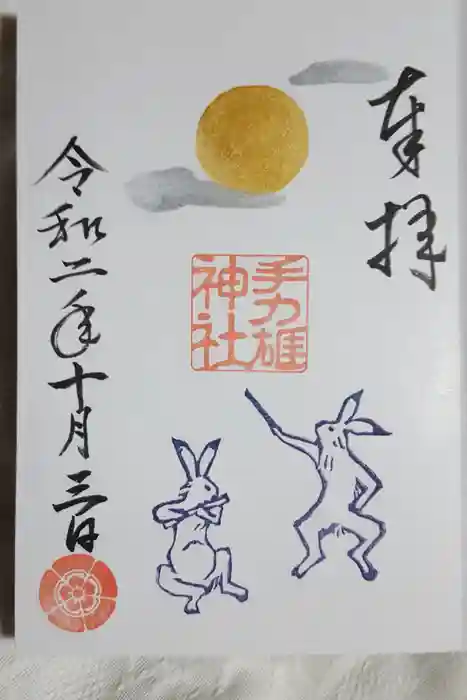 奉拝
手力雄
神社
令和二年十月三日